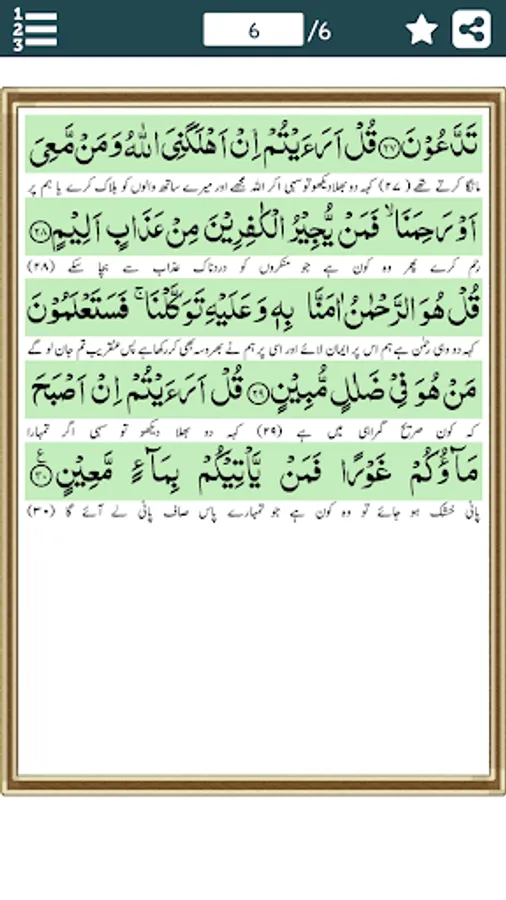 1 2 3 6 /6
تَدَّعُوْنَ ﴿۲۷﴾ قُلْ اَرَءَيْتُمْ اِنْ اَهْلَكَنِيَ اللّٰهُ وَمَنْ مَّعِيَ
مانگا کرتے تھے (۲۷) کہہ دو بھلا دیکھو تو سہی اگر اللہ مجھے اور میرے ساتھ والوں کو ہلاک کرے یا ہم پر
اَوْ رَحِمَنَا ۙ فَمَنْ يُّجِيْرُ الْكٰفِرِيْنَ مِنْ عَذَابٍ اَلِيْمٍ ﴿۲۸﴾
رحم کرے پھر وہ کون ہے جو منکروں کو دردناک عذاب سے بچا سکے (۲۸)
قُلْ هُوَ الرَّحْمٰنُ اٰمَنَّا بِهٖ وَعَلَيْهِ تَوَكَّلْنَا ۚ فَسَتَعْلَمُوْنَ
کہہ دو وہی رحمٰن ہے ہم اس پر ایمان لائے اور اسی پر ہم نے بھروسہ بھی کر رکھا ہے پس عنقریب تم جان لو گے
مَنْ هُوَ فِيْ ضَلٰلٍ مُّبِيْنٍ ﴿۲۹﴾ قُلْ اَرَءَيْتُمْ اِنْ اَصْبَحَ
کہ کون صریح گمراہی میں ہے (۲۹) کہہ دو بھلا دیکھو تو سہی اگر تمہارا
مَآؤُكُمْ غَوْرًا فَمَنْ يَّاْتِيْكُمْ بِمَآءٍ مَّعِيْنٍ ﴿۳۰﴾ ع
پانی خشک ہو جائے تو وہ کون ہے جو تمہارے پاس صاف پانی لے آئے گا (۳۰)